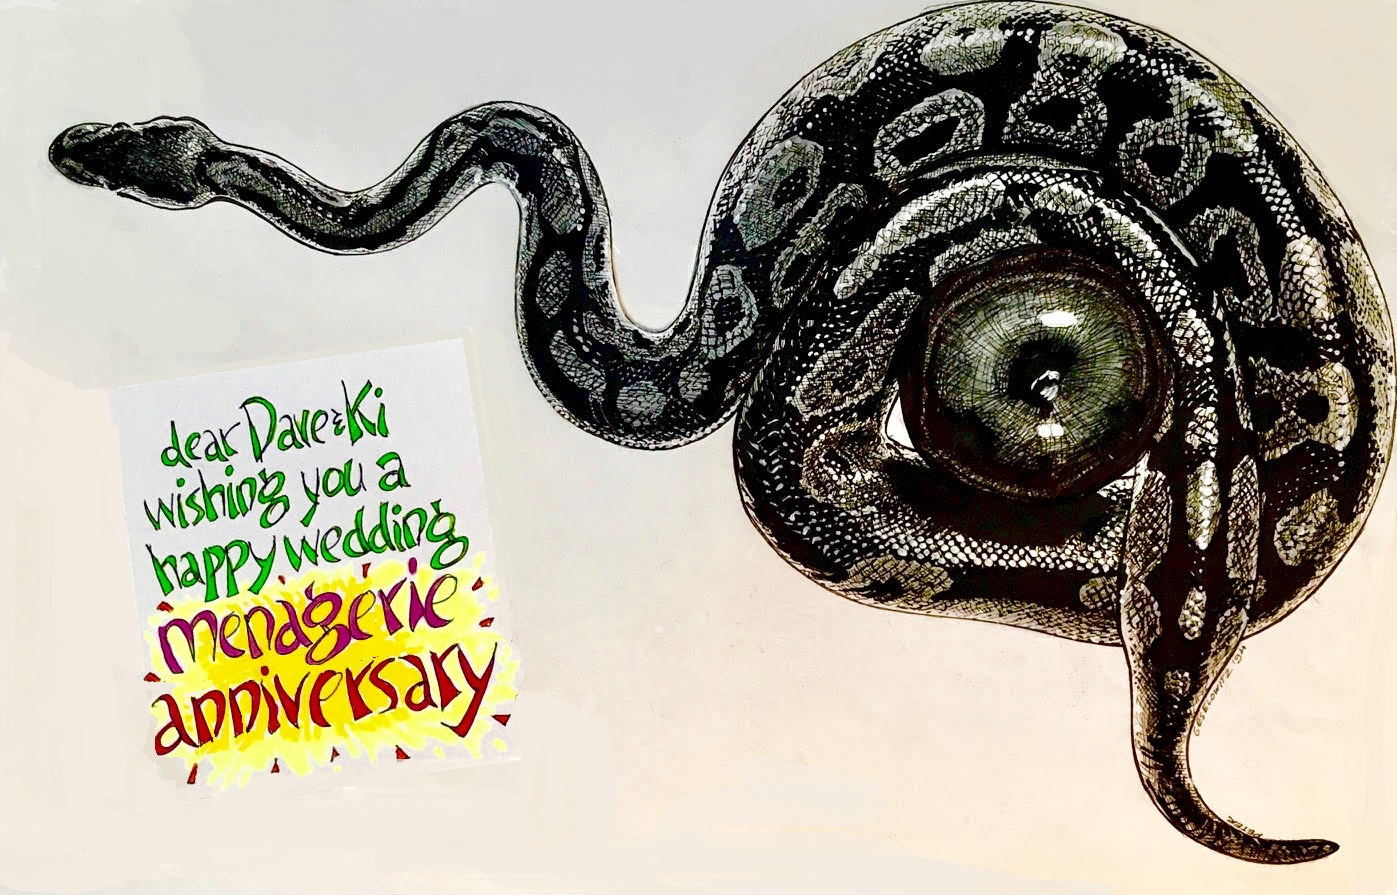 dear Dave & Ki
wishing you a
happy wedding
menagerie
anniversary